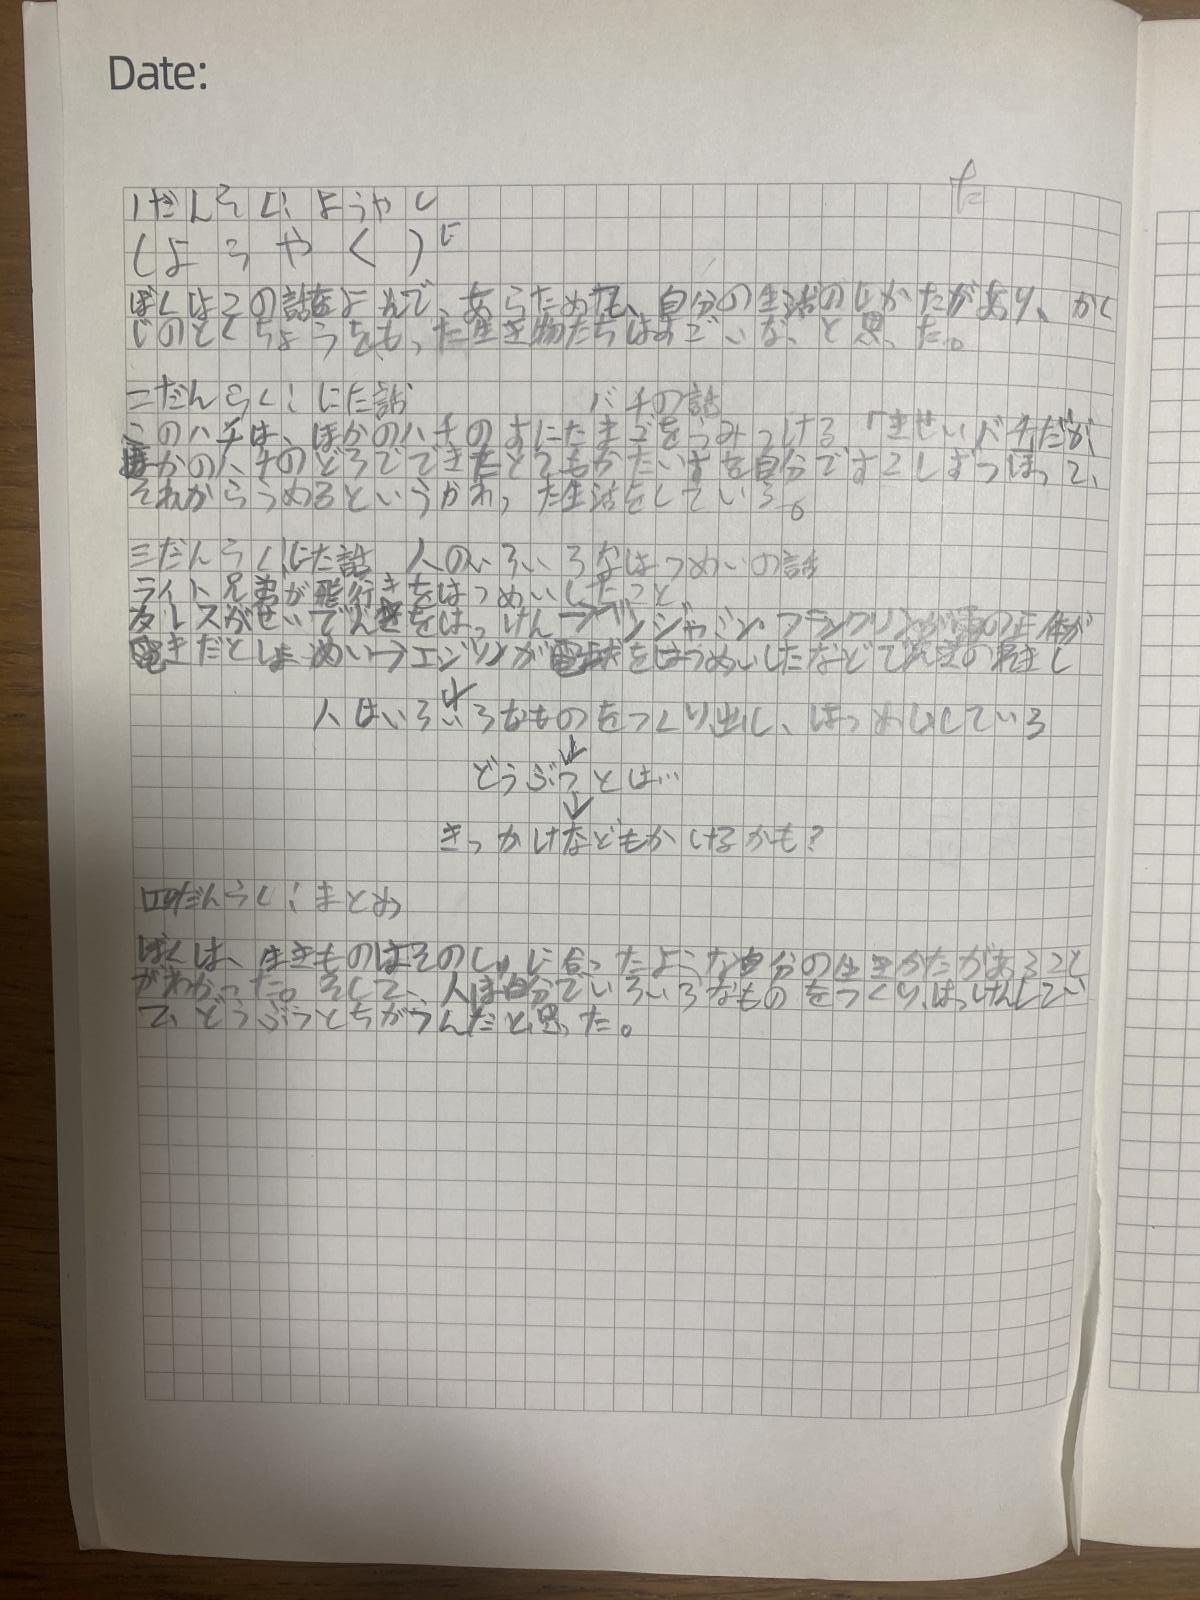 Date:
た
1だんらく:ようやく
(ようやく)に
ぼくはこの話をよんで、あらためて、自分の生活のしかたがあり、かく
じのとくちょうをもった生き物たちはすごいな、と思った。
二だんらく:にた話 ハチの話
このハチは、ほかのハチのすにたまごをうみつける「きせいバチだが
ほかのハチのどろでできたとてもかたいすを自分ですこしずつほって、
それからうめるというかわった生活をしている。
三だんらく:にた話 人のいろいろなはつめいの話
ライト兄弟が飛行きをはつめいしたこと
がせいでんきをはっけん→
人はいろいろなものをつくり出し、はっけんしている
↓
どうぶつとは…
↓
きっかけなどもかけるかも?
四だんらく:まとめ
ぼくは、生きものはそのしゅに合ったような自分の生きかたがあること
がわかった。そして、人は自分でいろいろなものをつくり、はっけんしてい
て、どうぶつとちがうんだと思った。